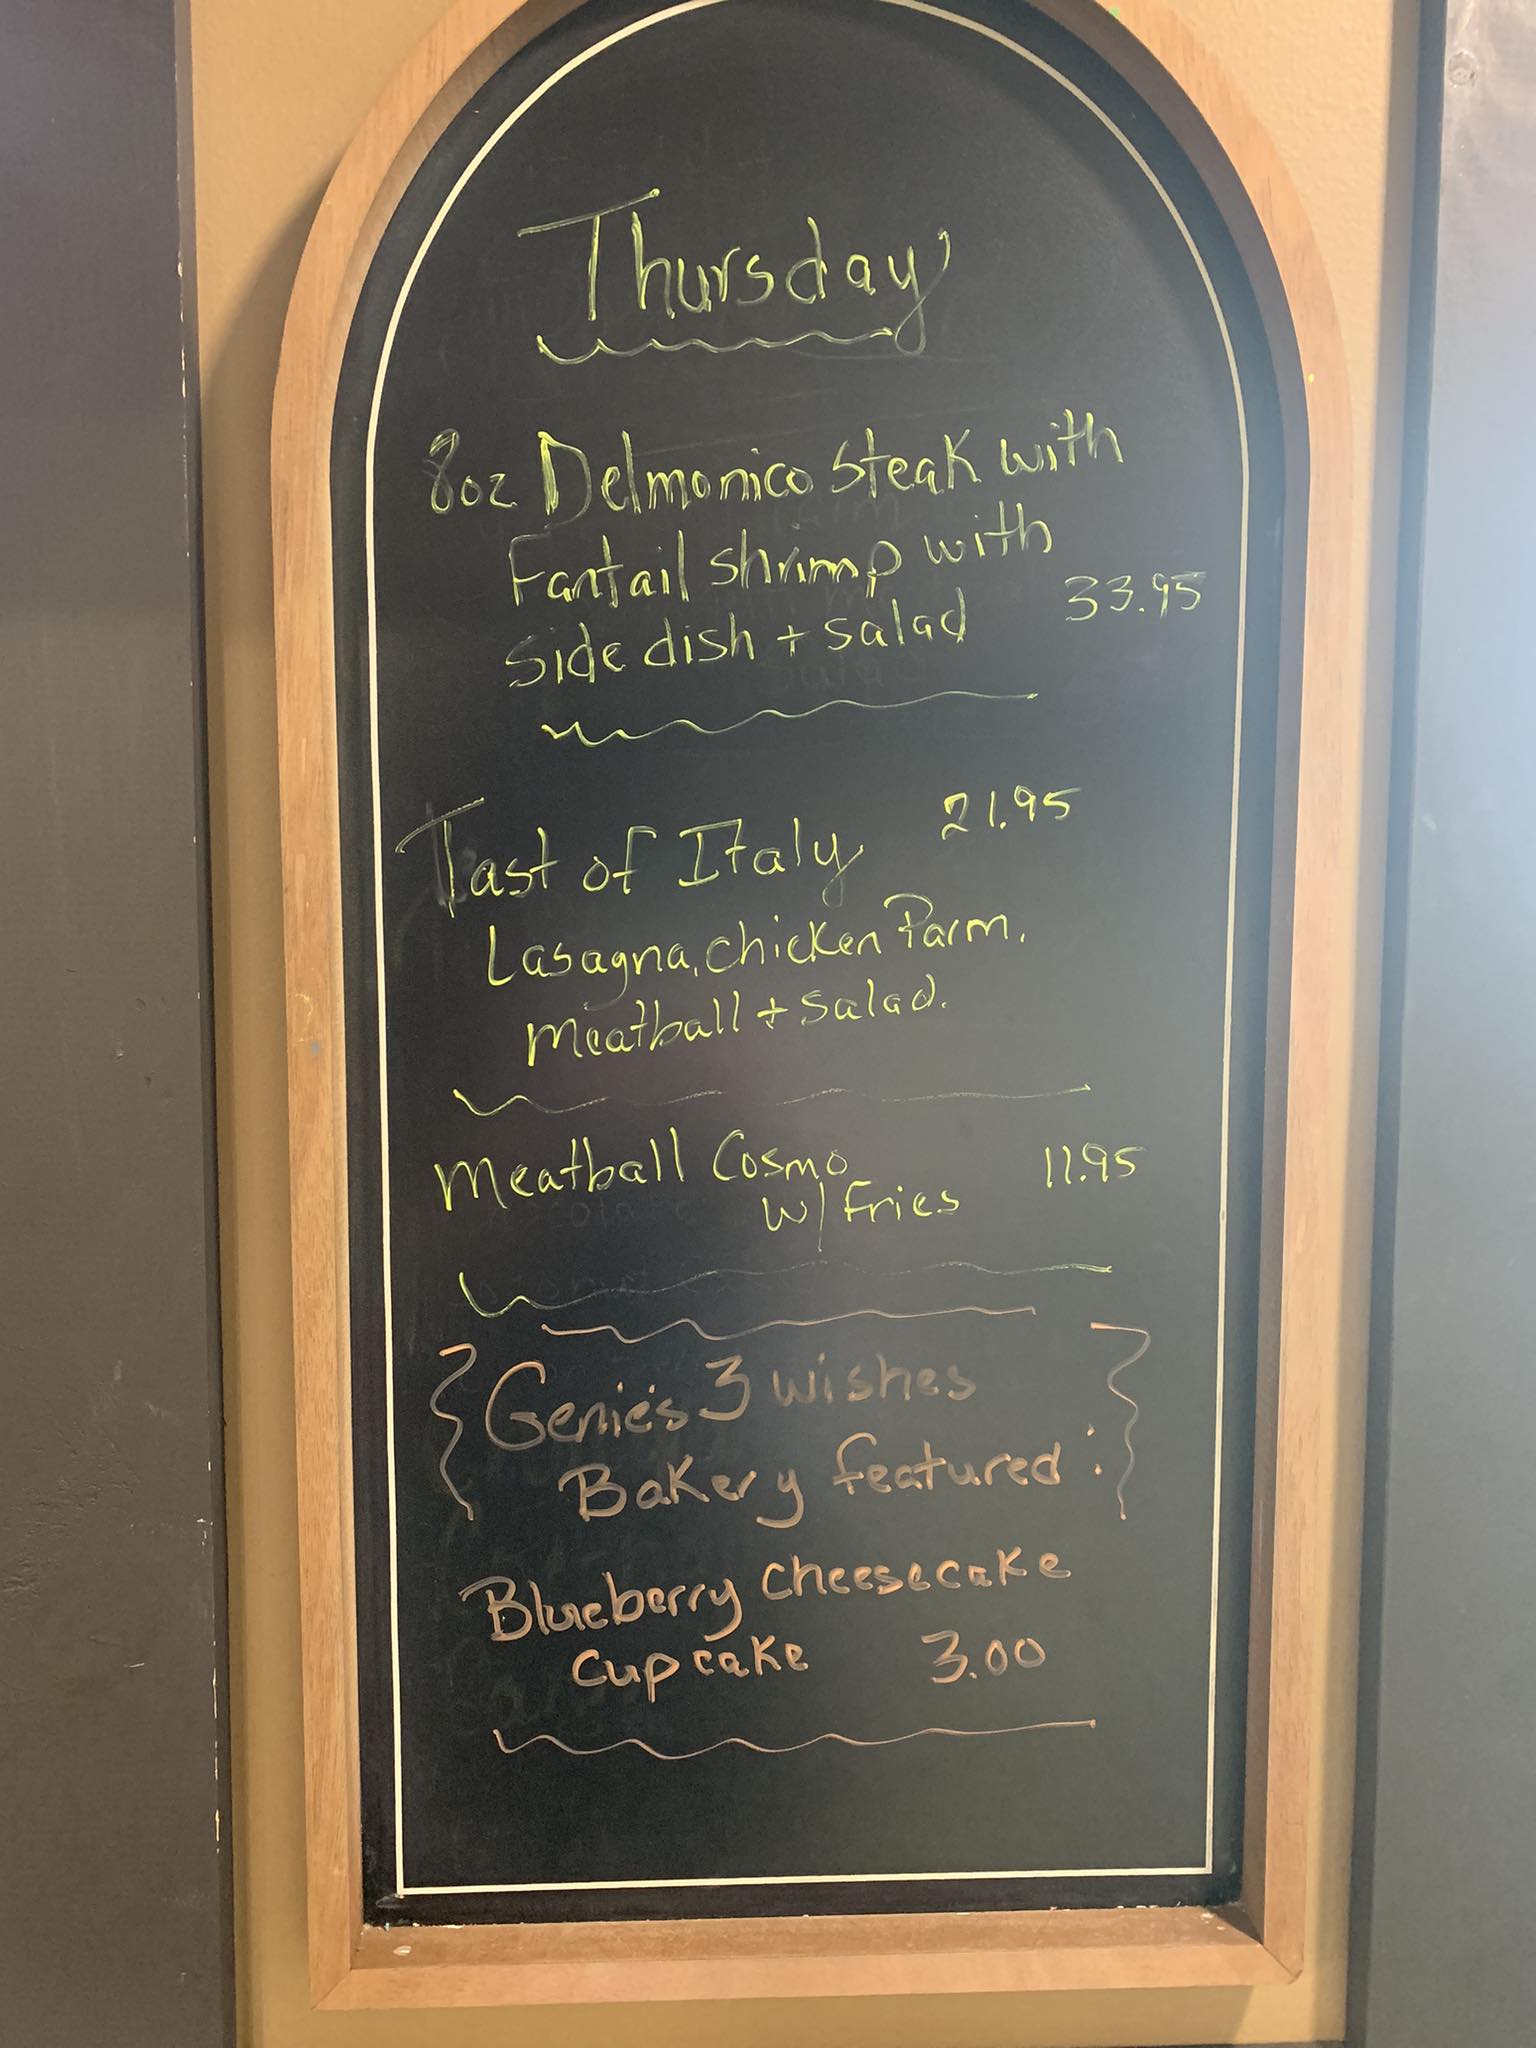 Thursday
8oz Delmonico steak with
Fantail shrimp with
side dish + salad 33.95
Tast of Italy 21.95
Lasagna, chicken Parm.
meatball + salad.
Meatball Cosmo 11.95
w/ Fries
{ Genie's 3 wishes }
Bakery featured :
Blueberry cheesecake
cupcake 3.00